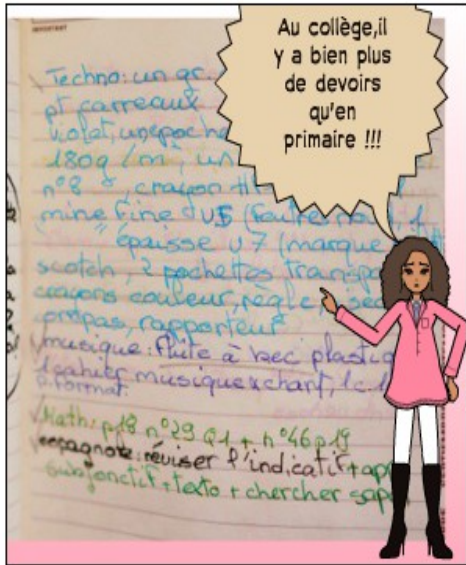 IMPORTANT
Au collège,il
y a bien plus
de devoirs
qu'en
primaire !!!
Techno: un gr.
pt carreaux
violet, une poche
180g / m, un
n°8 crayon
mine fine u5 (feutre noir, 1
" épaisse u7 (marque
scotch, 2 pochettes transpa
crayons couleur, règle,
ompas, rapporteur
musique: flûte à bec plastiq
1 cahier musique & chant,
p. format.
Math: p18 n°29 Q1 + n°46 p19
espagnole: réviser l'indicatif + app
subjonctif + texto + chercher